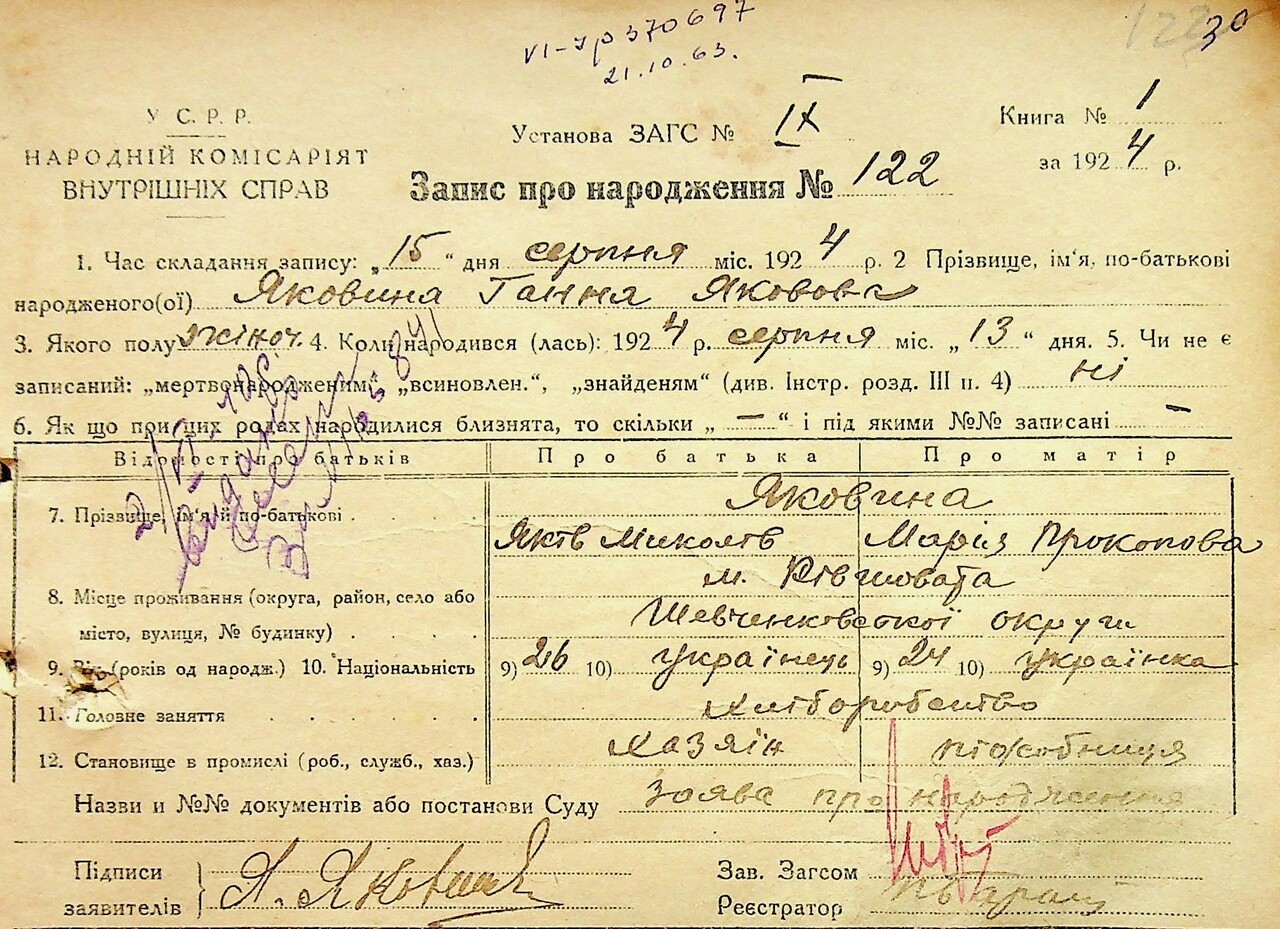 VI-УР 370697
21.10.63.
122 30
У С. Р. Р.
НАРОДНІЙ КОМІСАРІЯТ
ВНУТРІШНІХ СПРАВ
Установа ЗАГС № IX
Книга № 1
за 1924 р.
Запис про народження № 122
1. Час складання запису: „15“ дня серпня міс. 1924 р. 2 Прізвище, ім'я, по-батькові
народженого(ої) Яковина Гання Яковова
3. Якого полу жіноч. 4. Коли народився (лась): 1924 р. серпня міс. „13“ дня. 5. Чи не є
записаний: „мертвонародженим“ „всиновлен.“, „знайденям“ (див. Інстр. розд. III п. 4) ні
6. Як що при цих родах народилися близнята, то скільки „—“ і під якими №№ записані –
Відомості про батьків Про батька Про матір
Яковина
7. Прізвище, ім'я й по-батькові
Яків Миколів Марія Прокопова
м. Рівшовата
8. Місце проживання (округа, район, село або
місто, вулиця, № будинку)
Шевченковської округи
9. Вік (років од народж.) 10. Національність 9) 26 10) українець 9) 24 10) українка
11. Головне заняття хліборобство
12. Становище в промислі (роб., служб., хаз.) хазяїн пiдсобниця
Назви и №№ документів або постанови Суду Заява про народження
Підписи
заявителів Я. Яковина
Зав. Загсом
Реєстратор